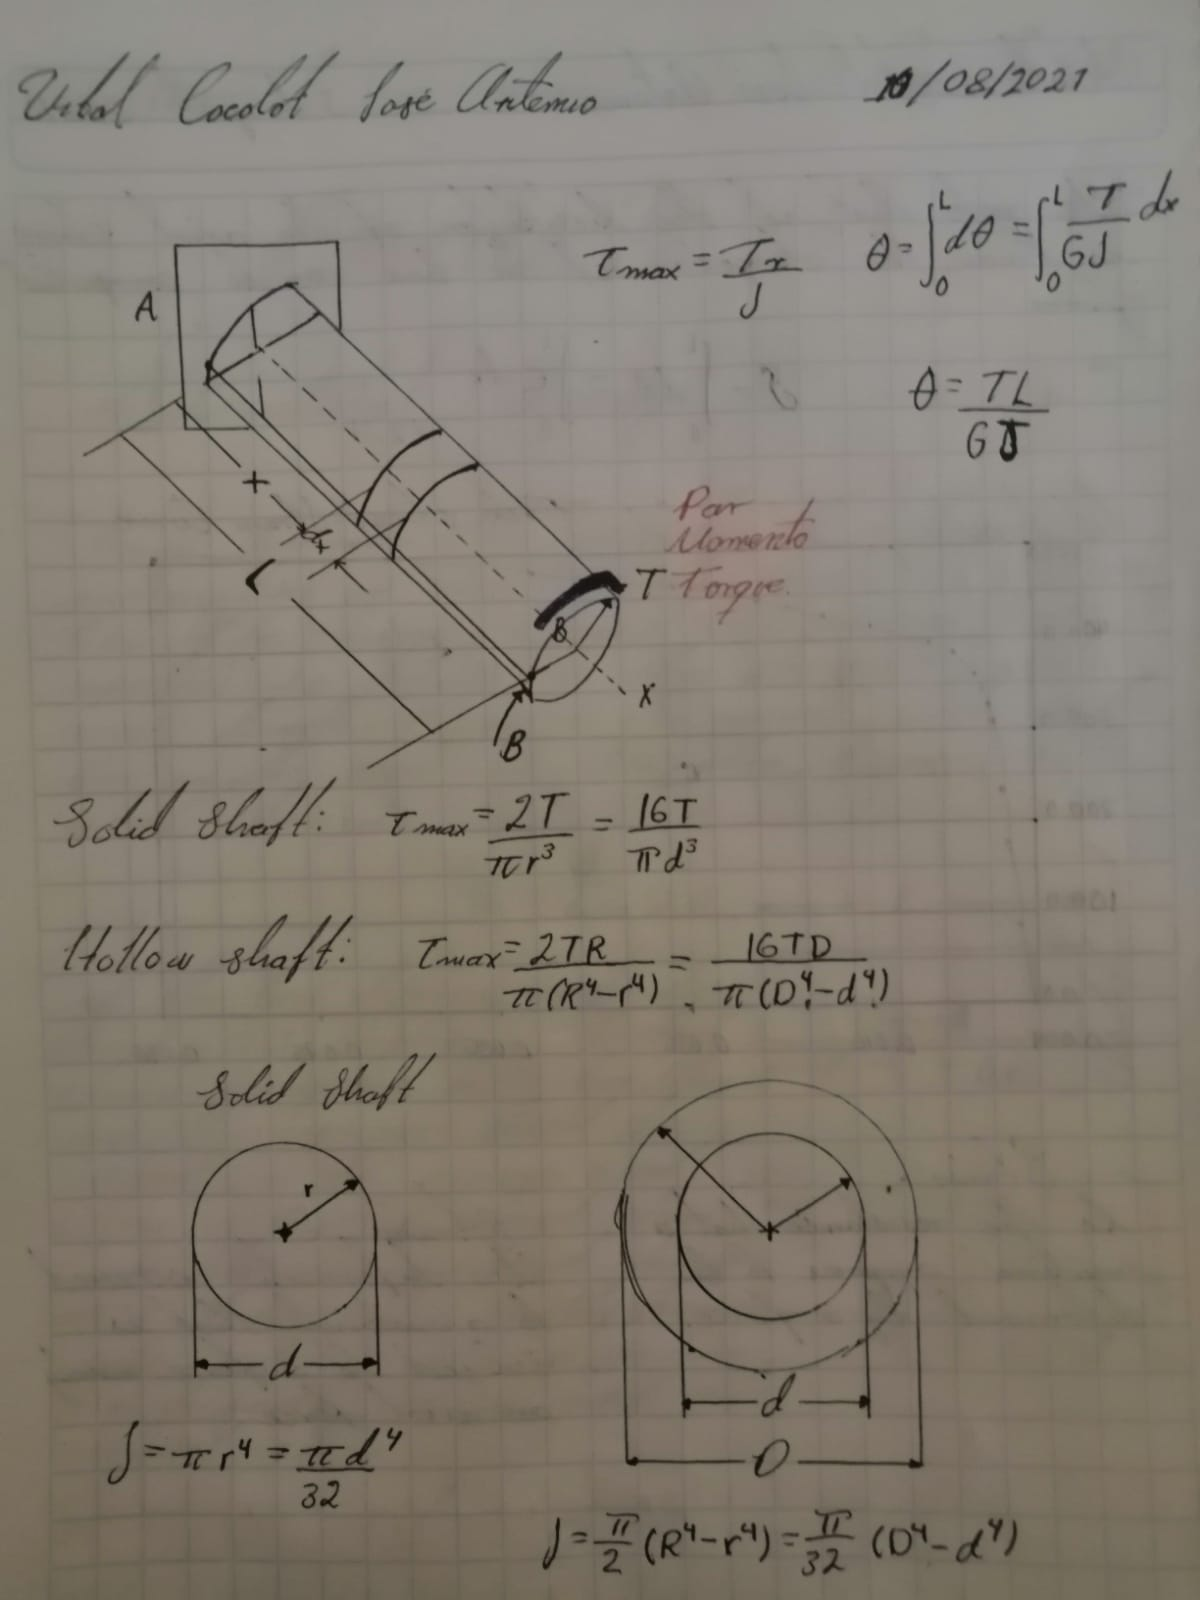 Vital Cocolot José Antemio 10/08/2021
τmax = Tr/J θ = ∫₀ᴸ dθ = ∫₀ᴸ T/GJ dx
A
θ = TL/GJ
x
dx
L
Par
Momento
T Torque.
θ
X
B
Solid shaft: τmax = 2T/πr³ = 16T/πd³
Hollow shaft: τmax = 2TR/π(R⁴-r⁴) = 16TD/π(D⁴-d⁴)
Solid shaft
r
d
d
D
J = πr⁴ = πd⁴/32
J = π/2 (R⁴-r⁴) = π/32 (D⁴-d⁴)